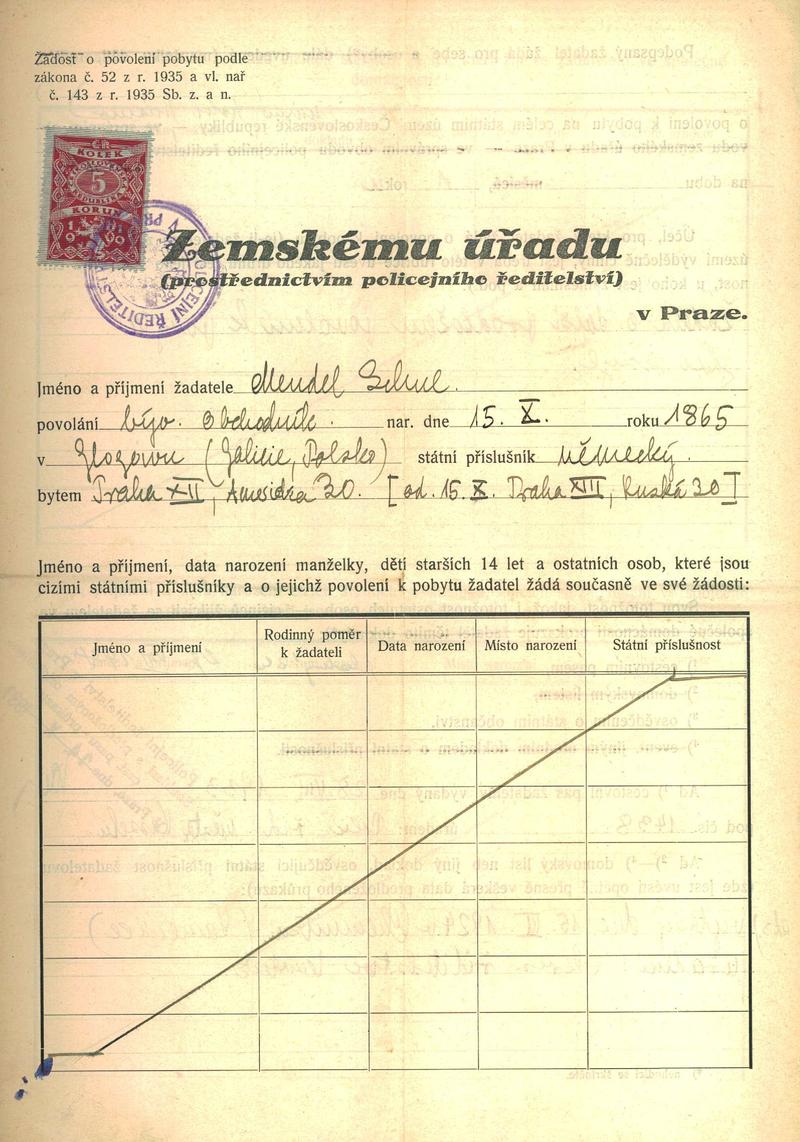 Žádost o povolení pobytu podle
zákona č. 52 z r. 1935 a vl. nař
č. 143 z r. 1935 Sb. z. a n.
ČR
KOLEK
5
KORUN
Zemskému úřadu
(prostřednictvím policejního ředitelství)
v Praze.
Jméno a příjmení žadatele Mendel
povolání býv. obchodník. nar. dne 15. X. roku 1865
v Glogowu (Galicie, Polsko) státní příslušník německý.
bytem Praha XII, Americká 30. [od. 15. X. Praha XIII, Ruská 30]
Jméno a příjmení, data narození manželky, dětí starších 14 let a ostatních osob, které jsou
cizími státními příslušníky a o jejichž povolení k pobytu žadatel žádá současně ve své žádosti:
Jméno a příjmení
Rodinný poměr
k žadateli
Data narození
Místo narození
Státní příslušnost